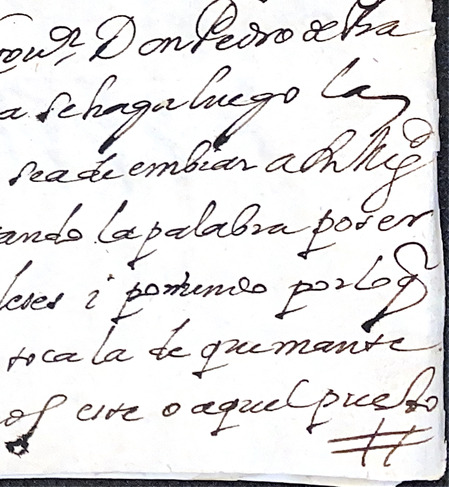 Don Pedro de
a se haga luego la
sea de embiar a
ando la palabra poner
i poniendo por loq
toca la de que mante
este o aquel puesto